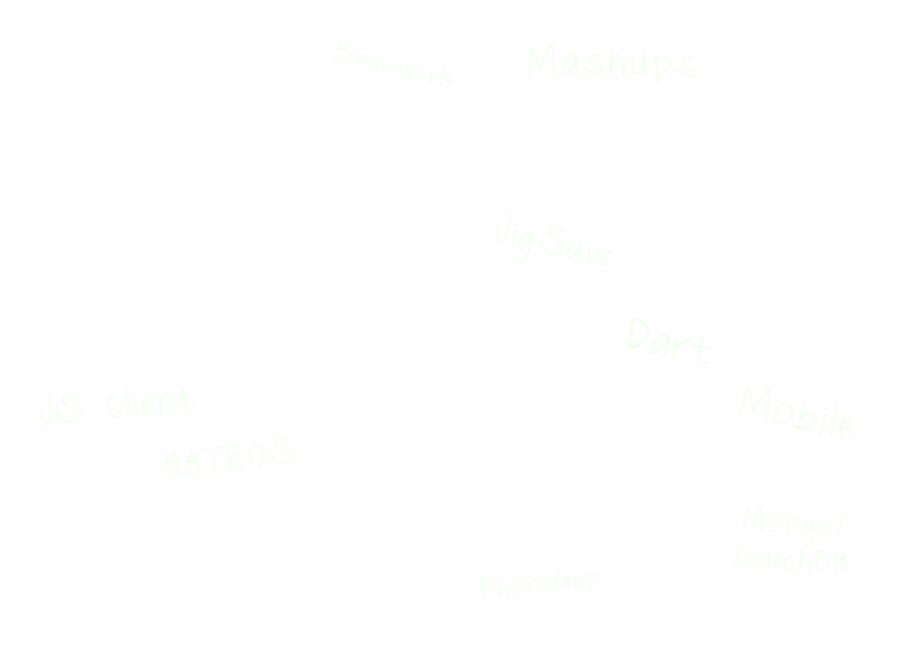 Framework
Mashups
JigSaw
Dart
JS Client
Mobile
HATEOS
Mongo/
CouchDB
PhoneGap